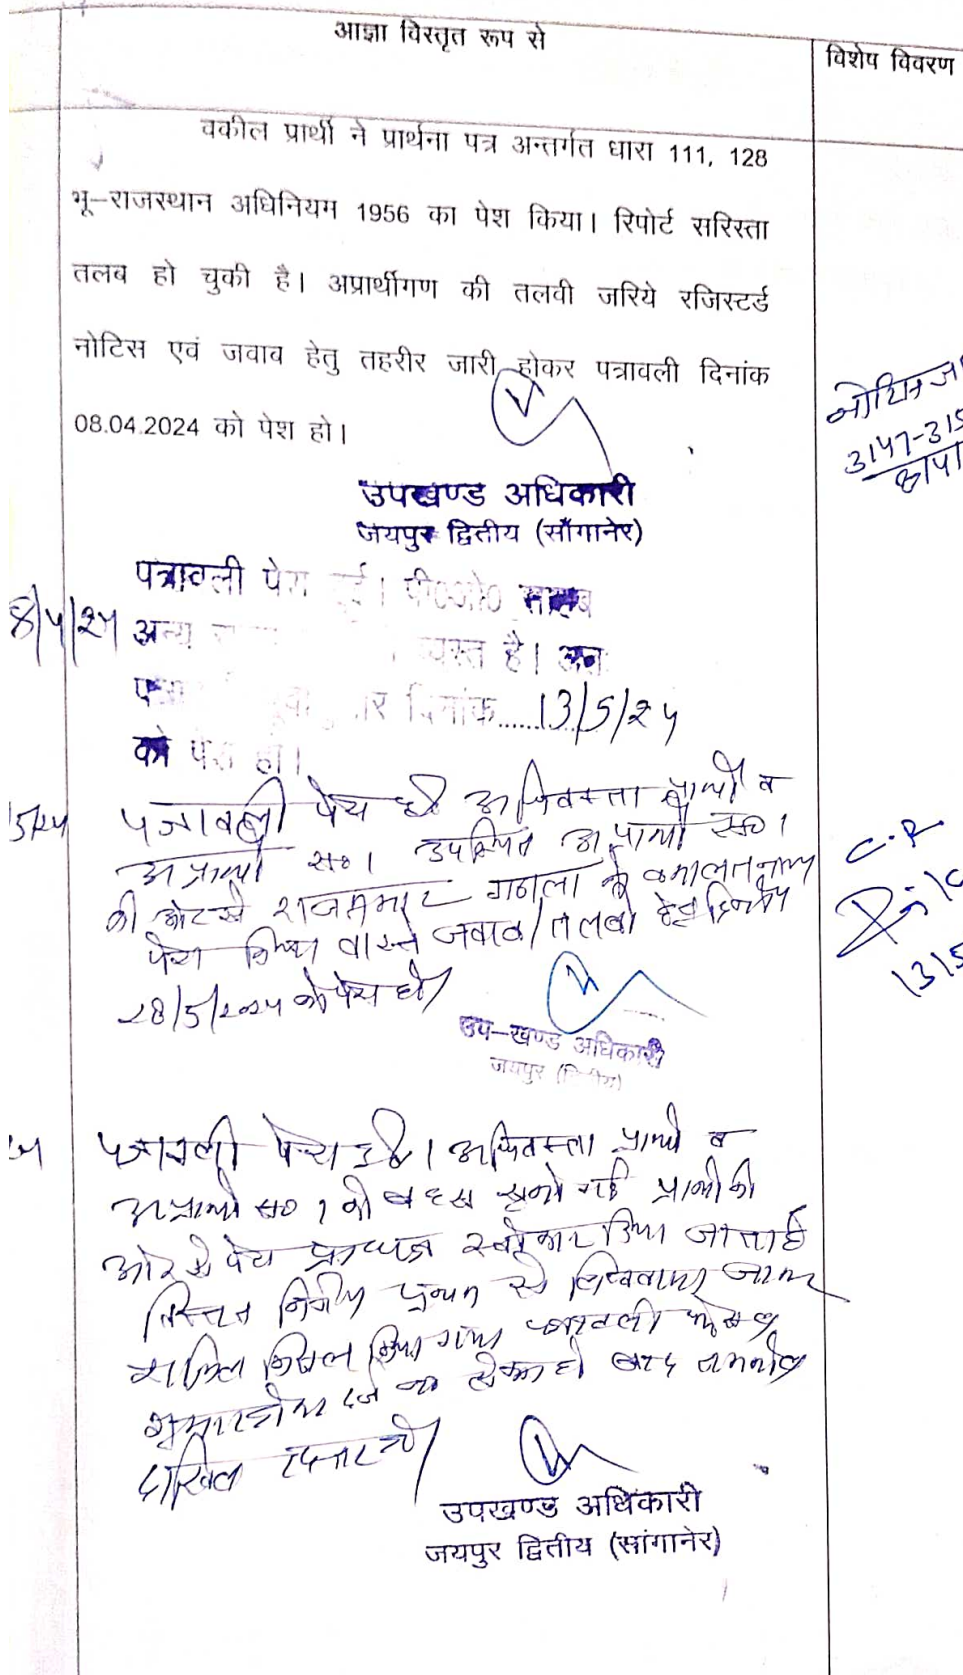 आज्ञा विस्तृत रूप से
विशेष विवरण
वकील प्रार्थी ने प्रार्थना पत्र अन्तर्गत धारा 111, 128
भू–राजस्थान अधिनियम 1956 का पेश किया। रिपोर्ट सरिस्ता
तलब हो चुकी है। अप्रार्थीगण की तलवी जरिये रजिस्टर्ड
नोटिस एवं जवाब हेतु तहरीर जारी होकर पत्रावली दिनांक
08.04.2024 को पेश हो।
3147-315
उपखण्ड अधिकारी
जयपुर द्वितीय (साँगानेर)
8/4/24
पत्रावली पेश हुई। पी०ओ० साहब
अन्य व्यस्त है। अतः
दिनांक......13/5/24
को पेश हो।
5/24
पत्रावली पेश हुई अधिवक्ता प्रार्थी व
अप्रार्थी स० 1 उपस्थित अप्रार्थी स० 1
की ओर से राजकुमार वकालतनामा
पेश किया वास्ते जवाब/तलबी हेतु दिनांक
28/5/2024 को पेश हो
C.R
13/5
उप–खण्ड अधिकारी
जयपुर (द्वितीय)
पत्रावली पेश हुई। अधिवक्ता प्रार्थी व
अप्रार्थी स० 1 की बहस सुनी गई प्रार्थी की
ओर से पेश प्रा० पत्र स्वीकार किया जाता है
निर्णय पृथक से लिखवाया जाकर
शामिल मिसल किया गया पत्रावली
दाखिल दफ्तर हो
उपखण्ड अधिकारी
जयपुर द्वितीय (सांगानेर)